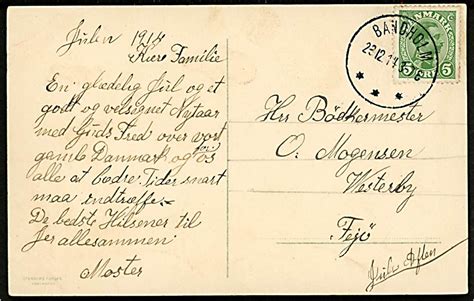 Julen 1914
Kære Familie
En glædelig Jul og et
godt og velsignet Nytaar
med Guds Fred over vort
gamle Danmark og for os
alle at bedre Tider snart
maa indtræffe.
De bedste Hilsener til
Jer allesammen
Moster
DANMARK
5 ØRE 5
BANDHOLM
23.12.14
Hr. Bødkermester
O. Mogensen
Vesterby
Fejö
Jule Aften